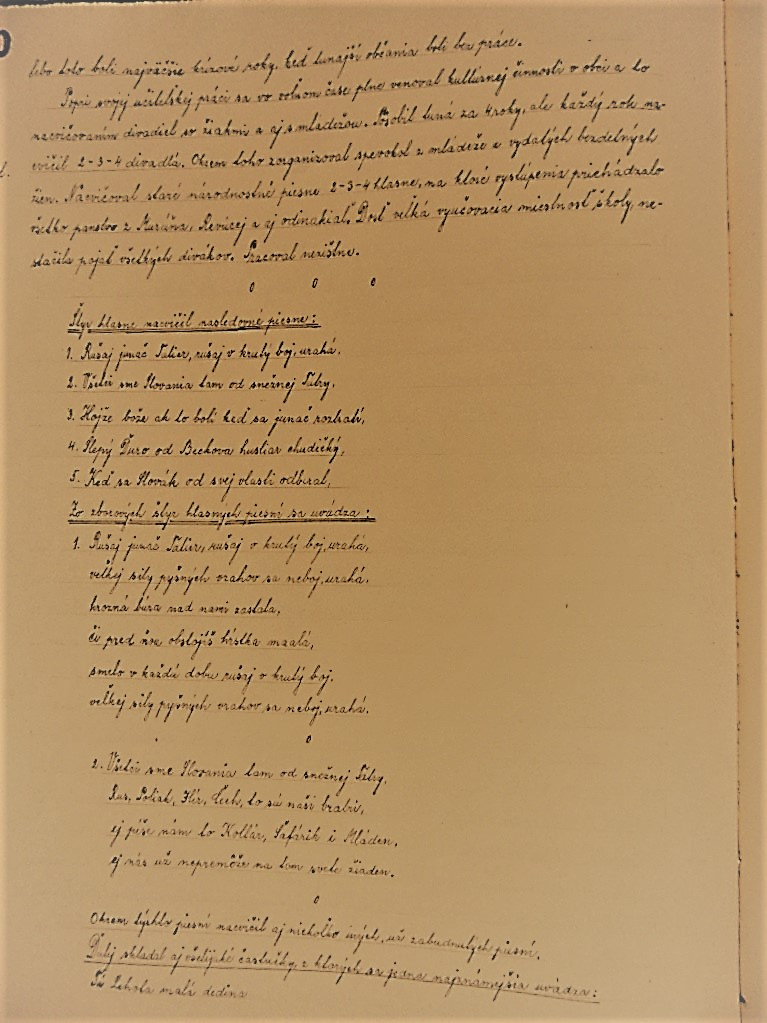 lebo toto boli najväčšie krízové roky, keď tunajší občania boli bez práce.
Popri svojej učiteľskej práci sa vo voľnom čase plne venoval kultúrnej činnosti v obci a to
nacvičovaním divadiel so žiakmi a aj s mládežou. Pôsobil tuná za 4 roky, ale každý rok na-
cvičil 2-3-4 divadlá. Okrem toho zorganizoval spevokol z mládeže a vydatých bezdetných
žien. Nacvičoval staré národnostné piesne 2-3-4 hlasne, na ktoré vystúpenia prichádzalo
všetko panstvo z Muráňa, Revúcej a aj odinakiaľ. Dosť veľká vyučovacia miestnosť školy, ne-
stačila pojať všetkých divákov. Pracoval nezištne.
o o o
Štyr hlasne nacvičil nasledovné piesne:
1. Rušaj junač Tatier, rušaj v krutý boj, urahá,
2. Všetci sme Slovania tam od snežnej Tatry,
3. Hojže bože ak to bolí keď sa junač rozhalí,
4. Slepý Ďuro od Beckova hustiar chudičký,
5. Keď sa Slovák od svej vlasti odbieral,
Zo zborových štyr hlasných piesní sa uvádza:
1. Rušaj junač Tatier, rušaj v krutý boj, urahá,
veľkej sily pyšných vrahov sa neboj, urahá,
hrozná búra nad nami zastala,
či pred ňou obstojíš hŕstka maalá,
smelo v každú dobu rušaj v krutý boj.
veľkej sily pyšných vrahov sa neboj, urahá.
o
2. Všetci sme Slovania tam od snežnej Tatry,
Rus, Poliak, Ilír, Čech, to sú naši bratri,
ej píše nám to Kollár, Šafárik i Mláden,
ej nás už nepremôže na tom svete žiaden.
o
Okrem týchto piesní nacvičil aj niekoľko iných, už zabudnutých piesní.
Ďalej skladal aj všelijaké častušky, z ktorých sa jedna najznámejšia uvádza:
Tá Lehota malá dedina